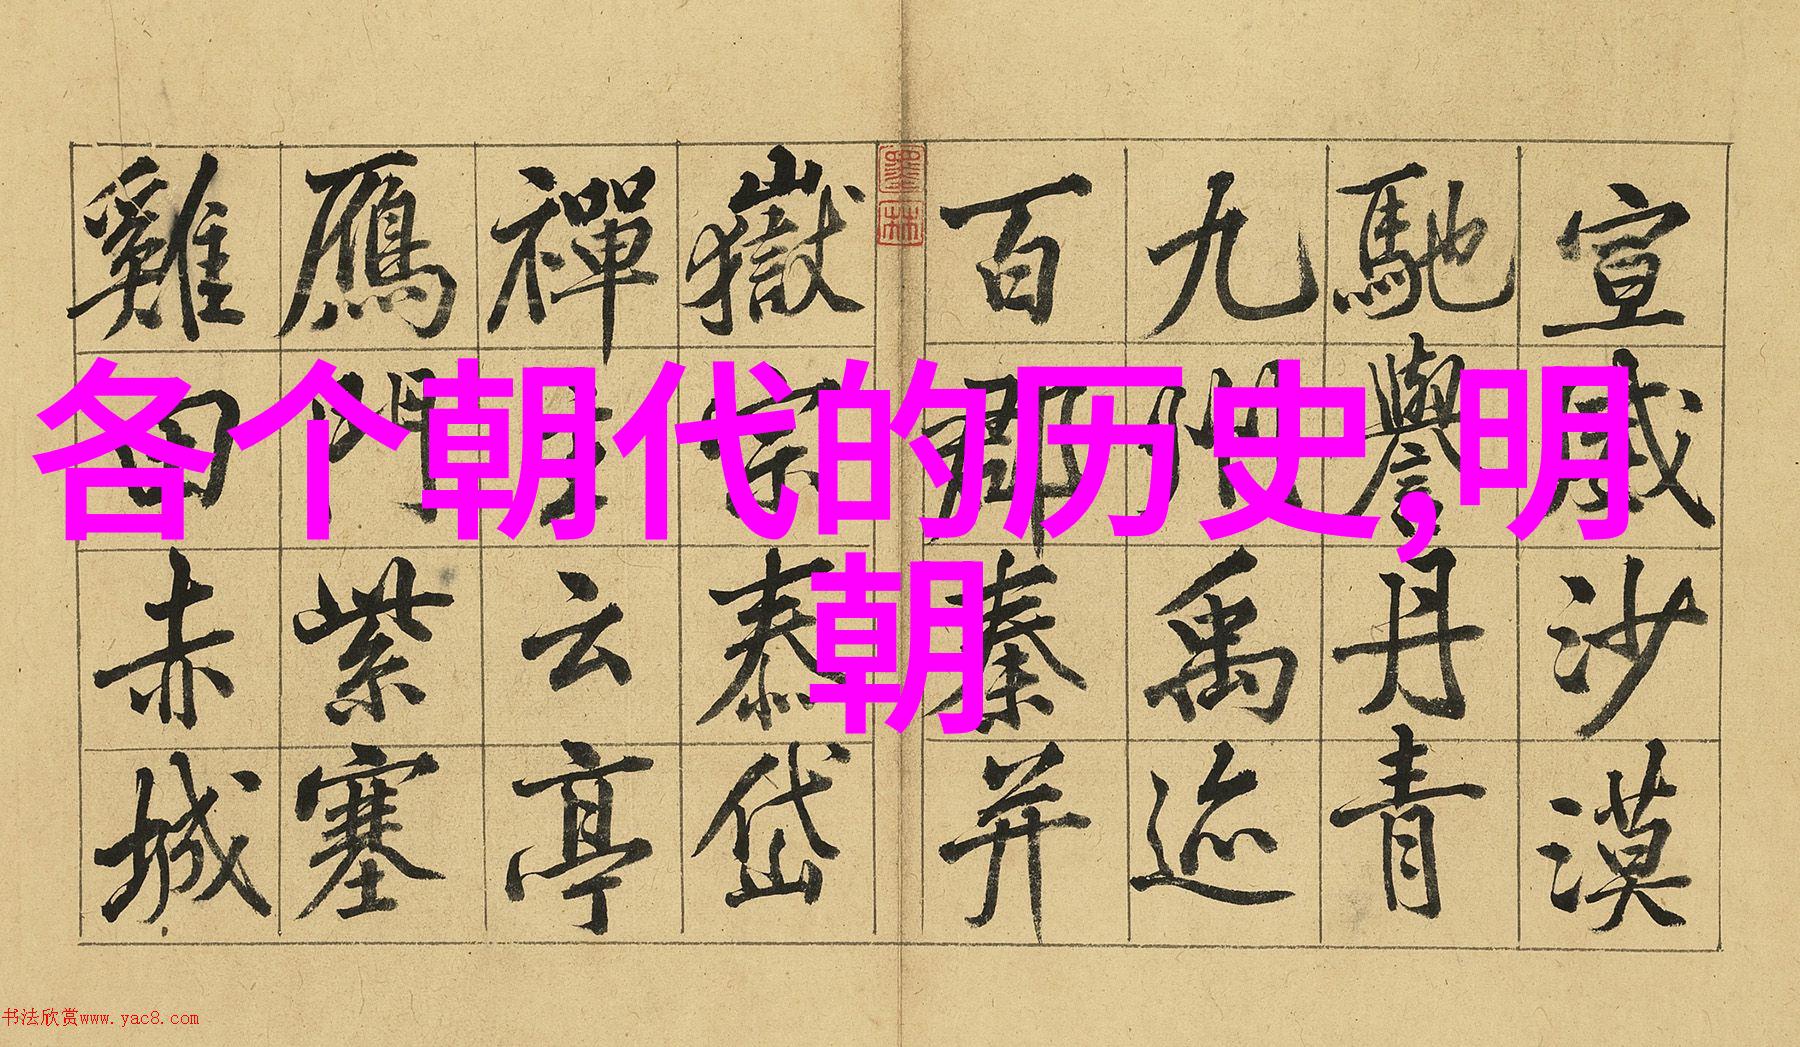 各个朝代的历史,明
朝
宣威沙漠
馳譽丹青
九州禹迹
百郡秦并
墨林
嶽宗泰岱
禪主云亭
鴈門紫塞
雞田赤城
书法欣赏www.yac8.com